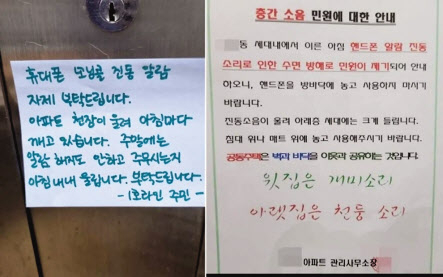 휴대폰 모닝콜 진동 알람
자제 부탁드립니다.
아파트 천장이 울려 아침마다
깨고 있습니다. 주말에는
알람 해제도 안하고 주무시는지
아침내내 울립니다. 부탁드립니다.
-1호라인 주민-
층간 소음 민원에 대한 안내
동 세대내에서 이른 아침 핸드폰 알람 진동
소리로 인한 수면 방해로 민원이 제기되어 안내
하오니, 핸드폰을 방바닥에 놓고 사용하지 마시기
바랍니다.
전동소음이 울려 아래층 세대에는 크게 들립니다.
침대 위나 매트 위에 놓고 사용해주시기 바랍니다.
공동주택은 벽과 바닥을 이웃과 공유하는 것입니다.
윗집은 개미소리
아랫집은 천둥 소리
아파트 관리사무소장